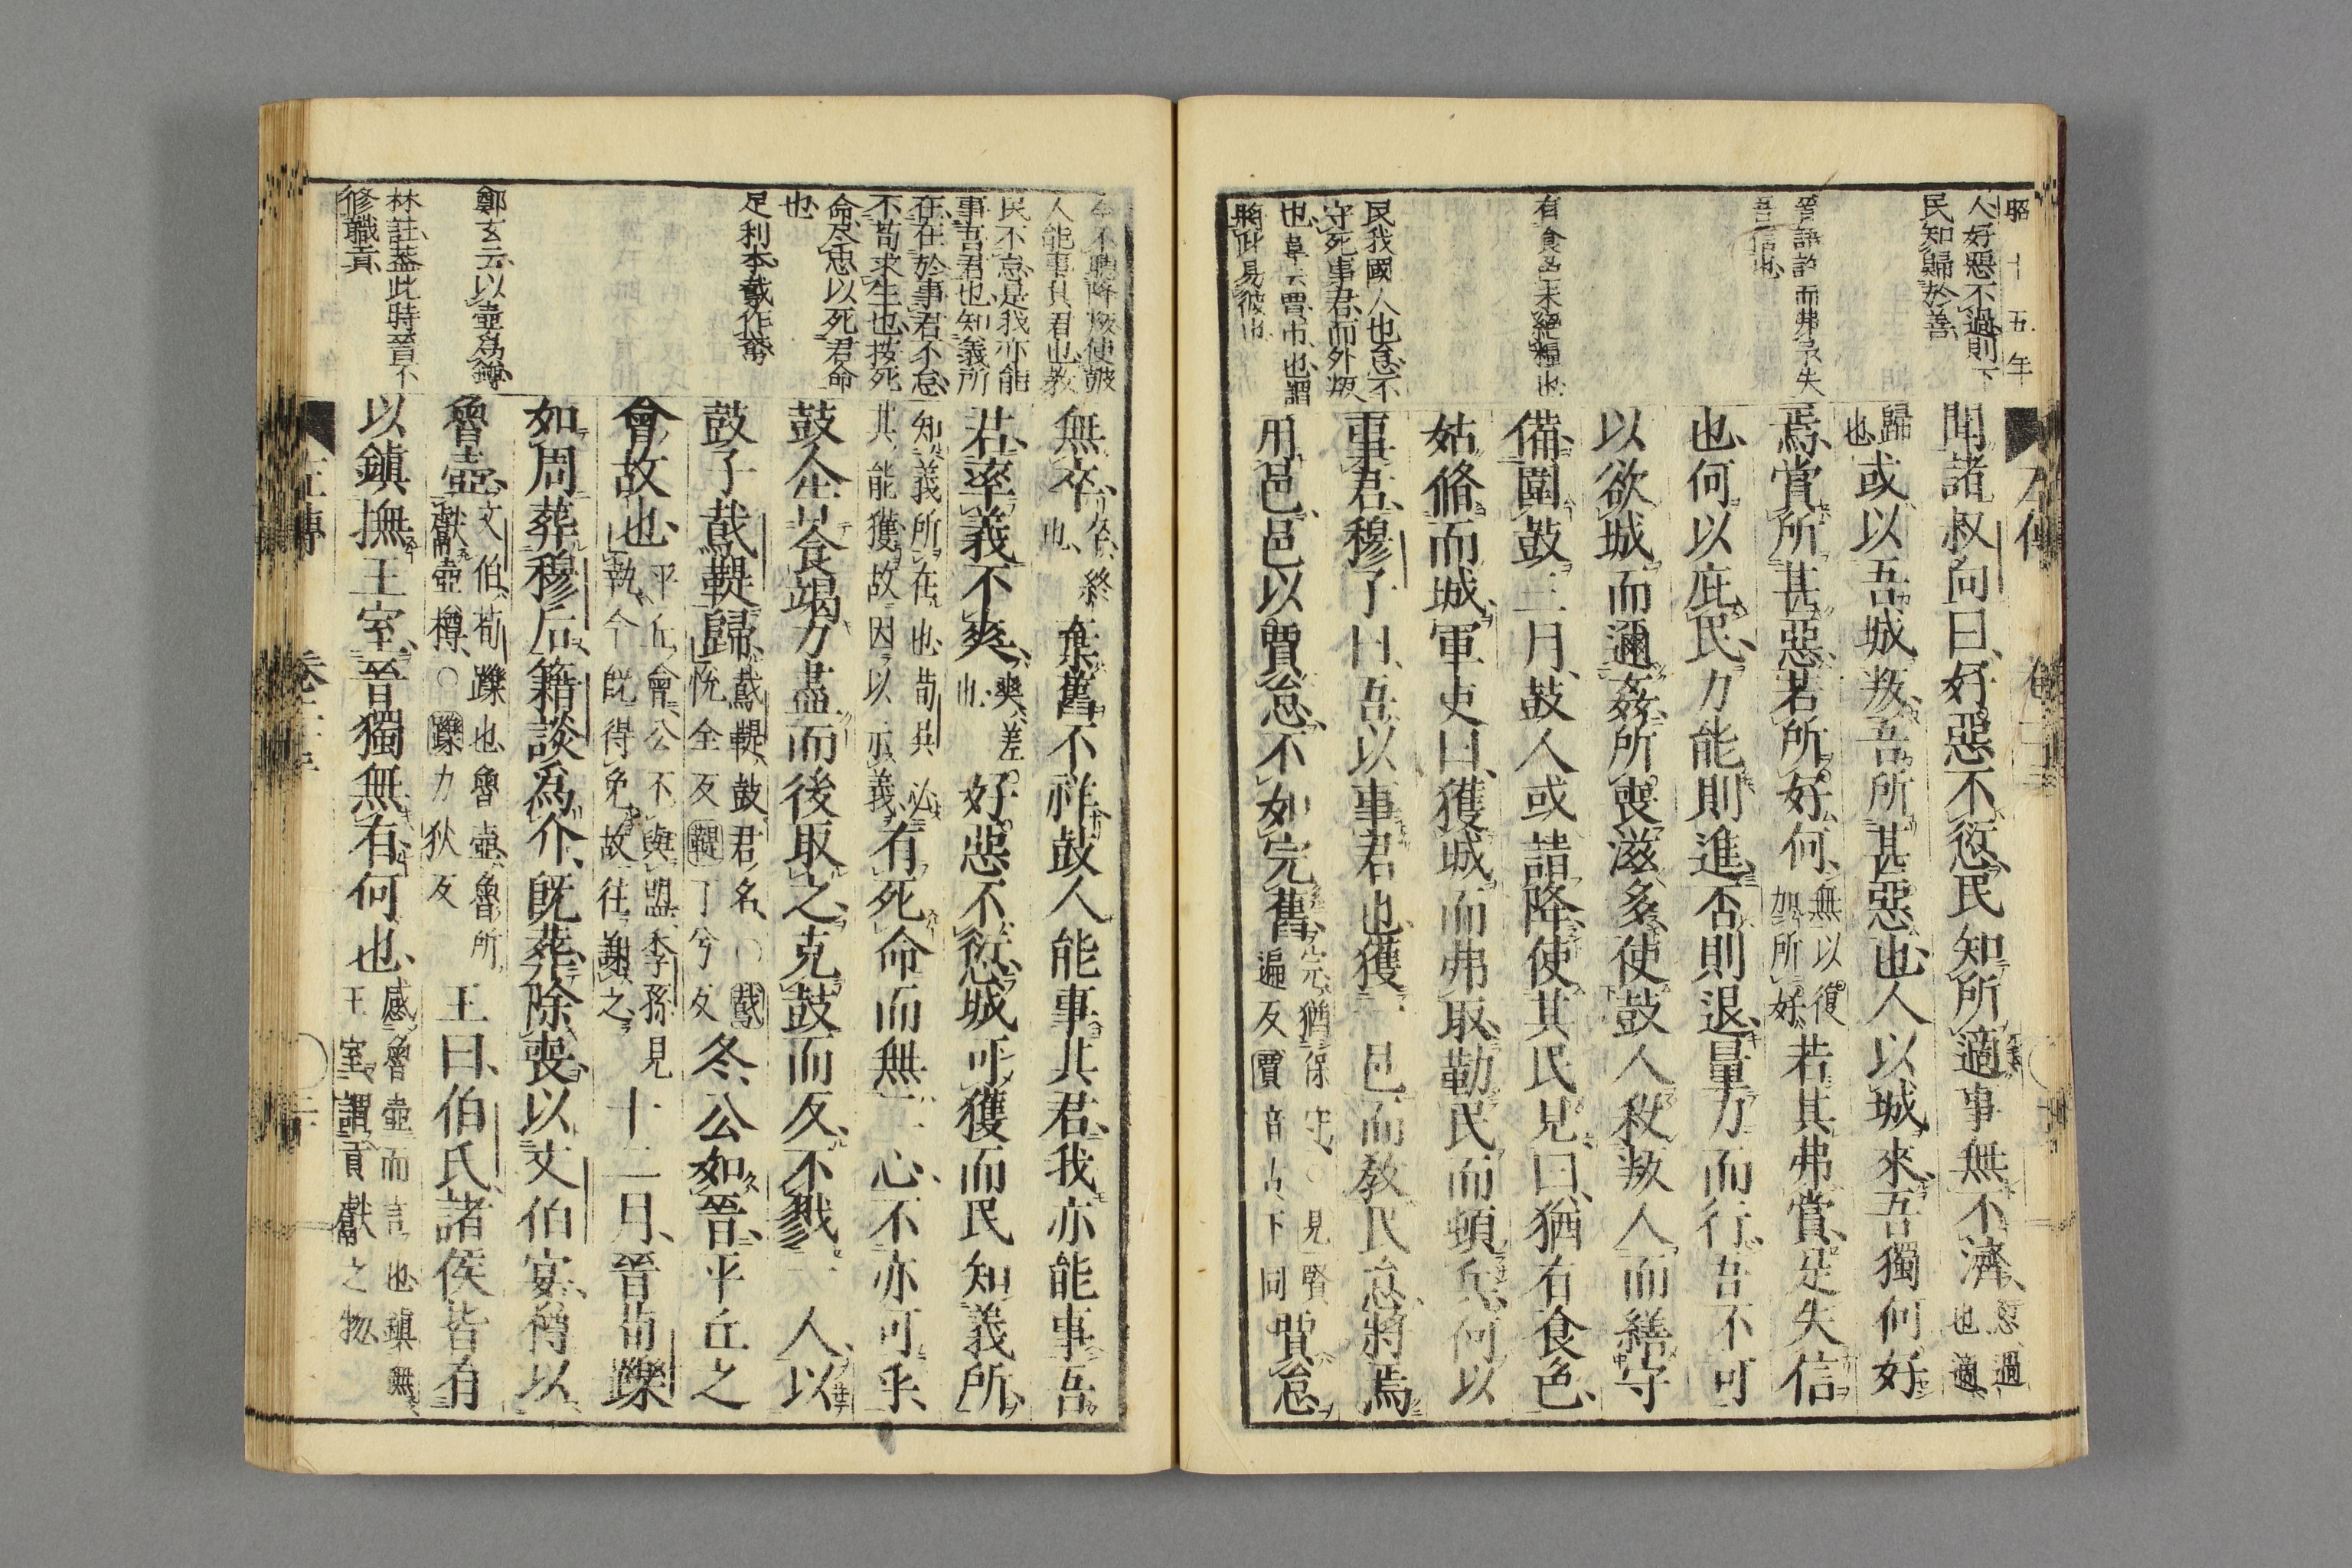 昭十五年
人好惡不過則下
民知歸於善
晉語許而弗予失
吾信也
有食色未絕糧也
民我國人也怠不
守死事君而外叛
也卓云賈市也謂
將此易彼也
聞諸叔向曰好惡不愆民知所適事無不濟愆過也適
歸也或以吾城叛吾所甚惡也人以城來吾獨何好
焉賞所甚惡若所好何無以復加所好若其弗賞是失信
也何以庇民力能則進否則退量力而行吾不可
以欲城而邇姦所喪滋多使鼓人殺叛人而繕守
備圍鼓三月鼓人或請降使其民見曰猶有食色
姑脩而城軍吏曰獲城而弗取勤民而頓兵何以
事君穆子曰吾以事君也獲一邑而教民怠將焉
用邑邑以賈怠不如完舊完猶保守○見賢遍反賈音古下同賈怠
卒不聽降叛使皷
人能事其君也教
民不怠是我亦能
事吾君也知義所
在在於事君不怠
不苟求生也按死
命尽忠以死君命
也
足利本戴作鳶
鄭玄云以壺爲鐏
林註葢此時晉不
修職貢
無卒卒終也棄舊不祥鼓人能事其君我亦能事吾
君率義不爽爽差也好惡不愆城可獲而民知義所
知義所在也荀吳必其能獲故因以示義有死命而無二心不亦可乎
鼓人告食竭力盡而後取之克鼓而反不戮一人以
鼓子鳶鞮歸鳶鞮鼓君名○鳶悅全反鞮丁兮反冬公如晉平丘之
會故也平丘會公不與盟季孫見執今既得免故往謝之十二月晉荀躒
如周葬穆后籍談爲介既葬除喪以文伯宴樽以
魯壺文伯荀躒也魯壺魯所獻壺樽○躒力狄反王曰伯氏諸侯皆有
以鎮撫王室晉獨無有何也感魯壺而言也鎮撫王室謂貢獻之物